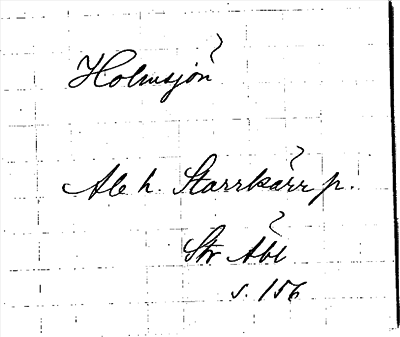 Holmsjön
Ale h. Starrkärr p.
Str Åbl
s. 156